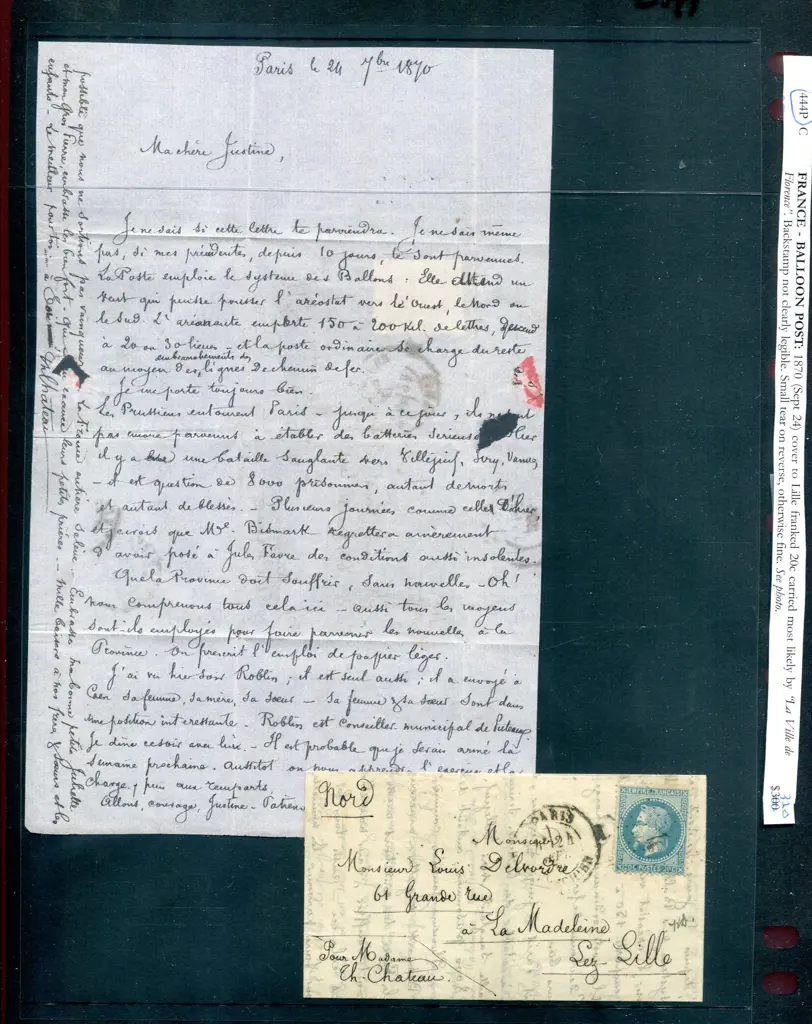 Paris le 24 7bre 1870
Ma chère Justine,
Je ne sais si cette lettre te parviendra. Je ne sais même
pas, si mes précédentes, depuis 10 jours, te sont parvenues.
La Poste emploie le système des Ballons : Elle attend un
vent qui puisse pousser l'aréostat vers l'Ouest, le Nord ou
le Sud. L' emporte 150 à 200 Kil. de lettres, descend
à 20 ou 30 lieues - et la poste ordinaire se charge du reste
embranchements des
au moyen des lignes de chemin de fer.
Je me porte toujours bien.
Les Prussiens entourent Paris - jusqu'à ce jour, ils
pas encore parvenus à établir des batteries sérieuses Hier
il y a une bataille sanglante vers Villejuif, Ivry, Vanves
- et est question de 8000 prisonniers, autant de morts
et autant de blessés. - Plusieurs journées comme celle d'hier,
et je crois que Mr. Bismark regrettera amèrement
d'avoir posé à Jules Favre des conditions aussi insolentes.
Que la Province doit souffrir, sans nouvelles - Oh!
nous comprenons tous cela ici - aussi tous les moyens
sont-ils employés pour faire parvenir les nouvelles à la
Province. On prescrit l'emploi de papier léger.
J'ai vu hier soir Roblin ; il est seul aussi ; il a envoyé à
Caen sa femme, sa mère, sa soeur - sa femme & sa soeur sont dans
une position intéressante. Roblin est conseiller municipal de Puteaux
Je dîne ce soir avec lui. - Il est probable que je serai armé la
semaine prochaine. Aussitôt on nous apprendra l'exercice et la
charge, puis aux remparts.
Allons, courage, Justine - Patience
possible que nous ne sortions pas vainqueurs La France entière Embrasse ma bonne petite Juliette
et mon gros Pierre, embrasse les bien fort - Que exauce leurs petites prières - Mille baisers à nos frères & soeurs et les
enfants - Le meilleur pour toi - à Toi
Th Chateau
Nord
PARIS
Monsieur
Monsieur Louis Delvordre
61 Grande rue
à La Madeleine
Lez-Lille
Pour Madame
Th-Chateau.
EMPIRE FRANÇAIS
20C POSTES 20C
444P C
FRANCE - BALLOON POST: 1870 (Sept 24) cover to Lille franked 20c carried most likely by "La Ville de
Florence". Backstamp not clearly legible. Small tear on reverse, otherwise fine. See photo.
$300